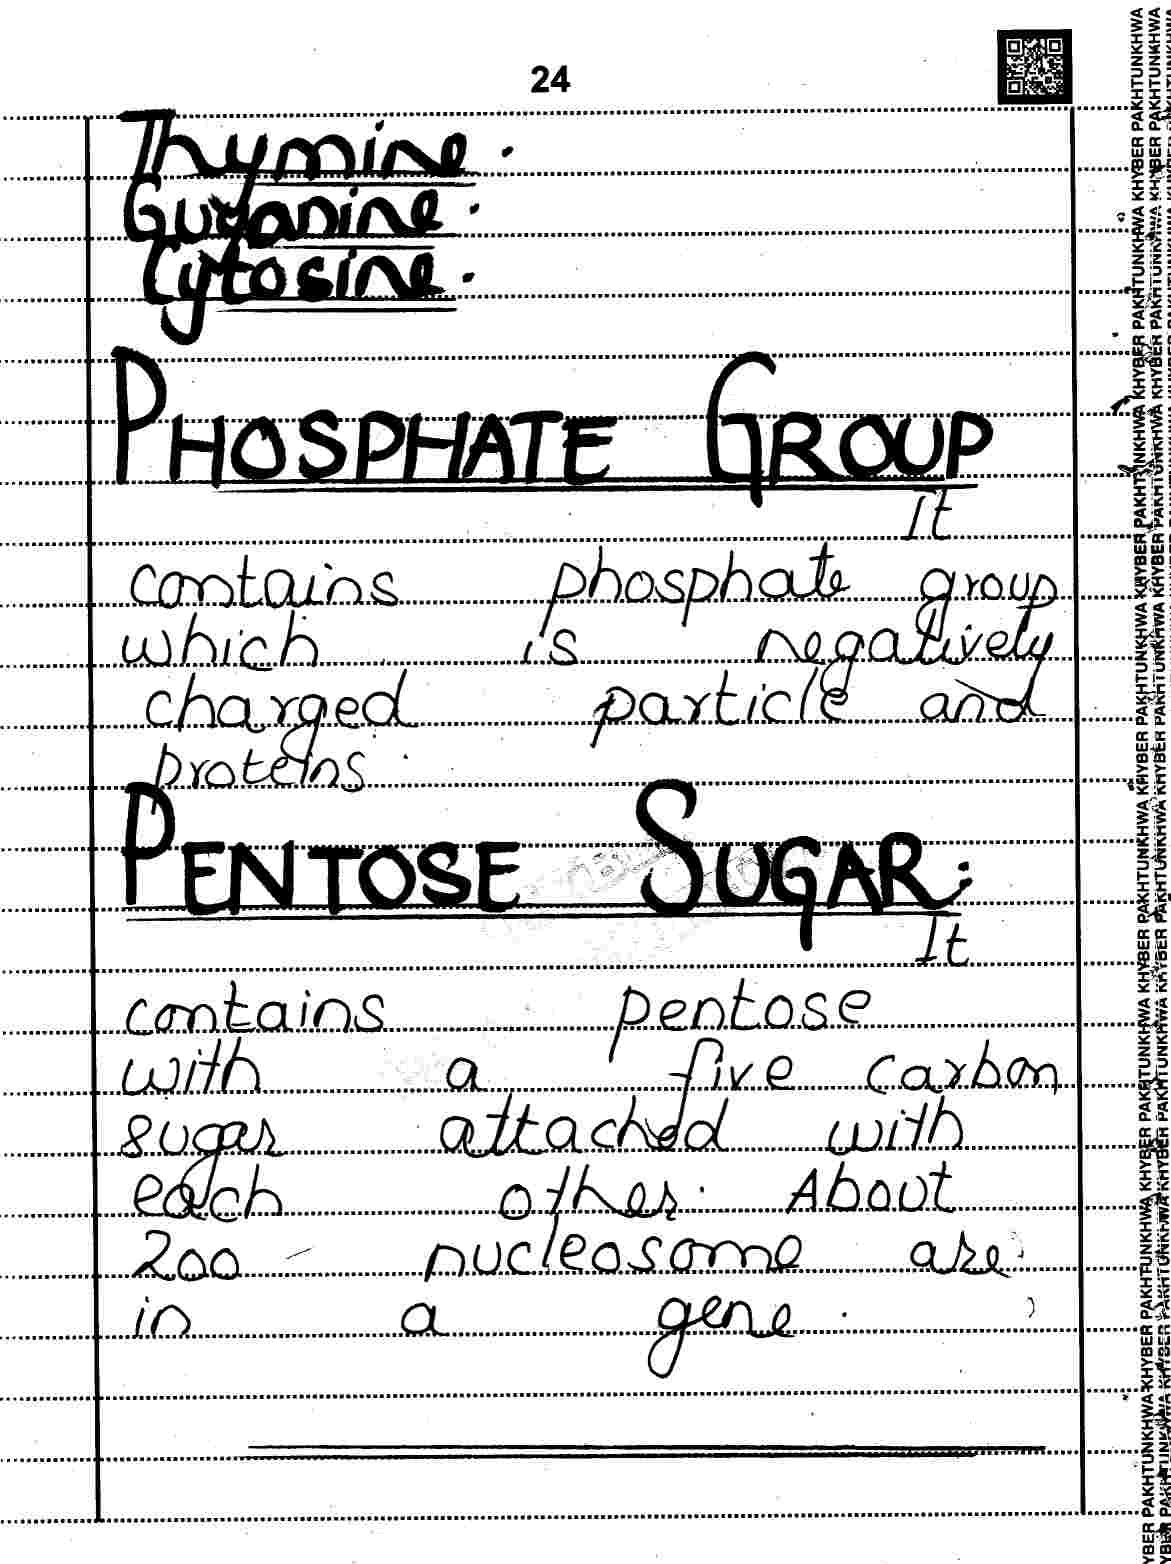 24
Thymine.
Guyanine.
Cytosine.
PHOSPHATE GROUP
It
contains phosphate group
which is negatively
charged particle and
proteins.
PENTOSE SUGAR:
It
contains pentose
with a five carbon
sugar attached with
each other. About
200 nucleosome are
in a gene.
KHYBER PAKHTUNKHWA KHYBER PAKHTUNKHWA KHYBER PAKHTUNKHWA KHYBER PAKHTUNKHWA KHYBER PAKHTUNKHWA KHYBER PAKHTUNKHWA